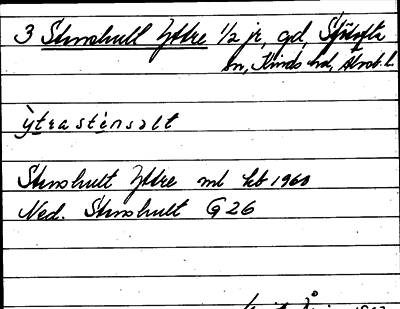 3 Stenshult Yttre 1/2 jr, gd,
sn, Kinds hd, Älvsb. l.
ỳtrasténsəlt
Stenshult Yttre ml kb 1960
Ned. Stenshult G 26